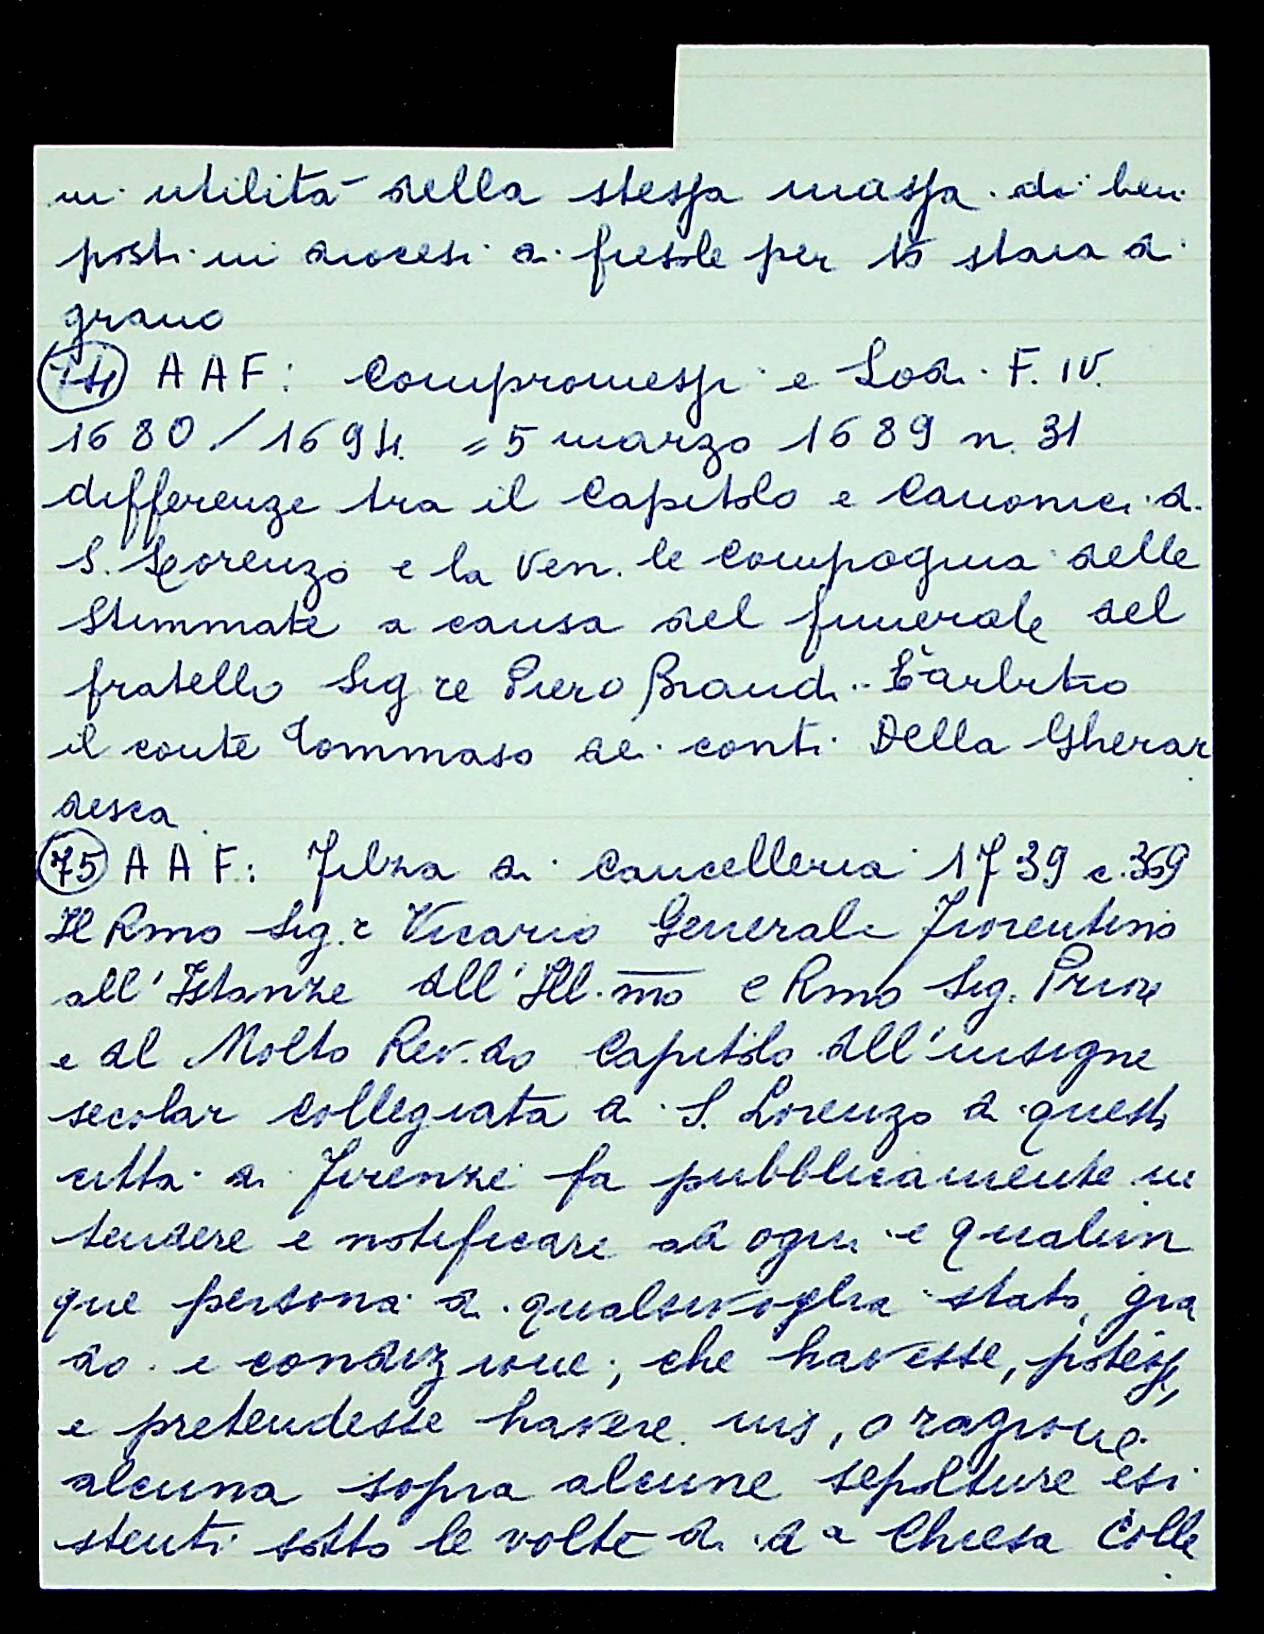 in utilità della stessa massa di beni
posti in diocesi di fiesole per 15 staia di
grano
74 AAF: Compromessi e Lodi. F. IV.
1680/1694. = 5 marzo 1689 n. 31
differenze tra il Capitolo e Canonici di
S. Lorenzo e la Ven.le Compagnia delle
Stimmate a causa del funerale del
fratello Sig.re Piero Brandi. È arbitro
il conte Tommaso dei conti Della Gherar
desca
75 AAF: Filza di Cancelleria 1739 c. 369
Il Rmo Sig.r Vicario Generale Fiorentino
all'Istanze dell'Ill.mo e Rmo Sig. Priore
e del Molto Rev.do Capitolo dell'insigne
secolar Collegiata di S. Lorenzo di questa
città di Firenze fa pubblicamente in
tendere e notificare ad ogni e qualun
que persona di qualsivoglia stato, gra
do e condizione, che havesse, potesse,
e pretendesse havere ius, o ragione
alcuna sopra alcune sepolture esi
stenti sotto le volte di d.a Chiesa Colle